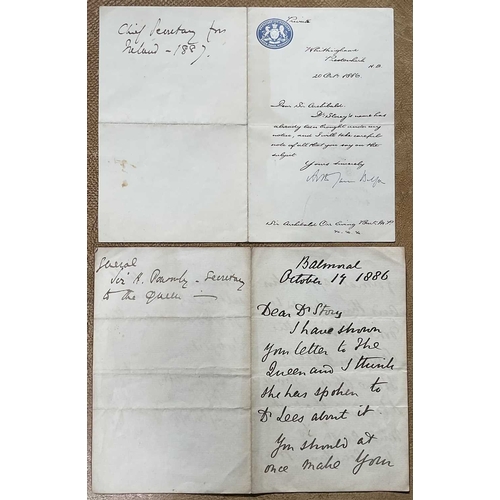 Chief Secretary for
Ireland - 1887.
Private
Whittingehame
Prestonkirk
N.B.
20 Oct. 1886
Dear Sir Archibald
Dr Story's name has
already been brought under my
notice, and I will take careful
note of all that you say on the
subject
Yours sincerely
Arthur James Balfour
Sir Archibald Orr Ewing Bart. M.P.
General
Sir H. Ponsonby - Secretary
to the Queen —
Balmoral
October 19 1886
Dear Dr Story
I have shown
your letter to The
Queen and I think
she has spoken to
Dr Lees about it
You should at
once make your